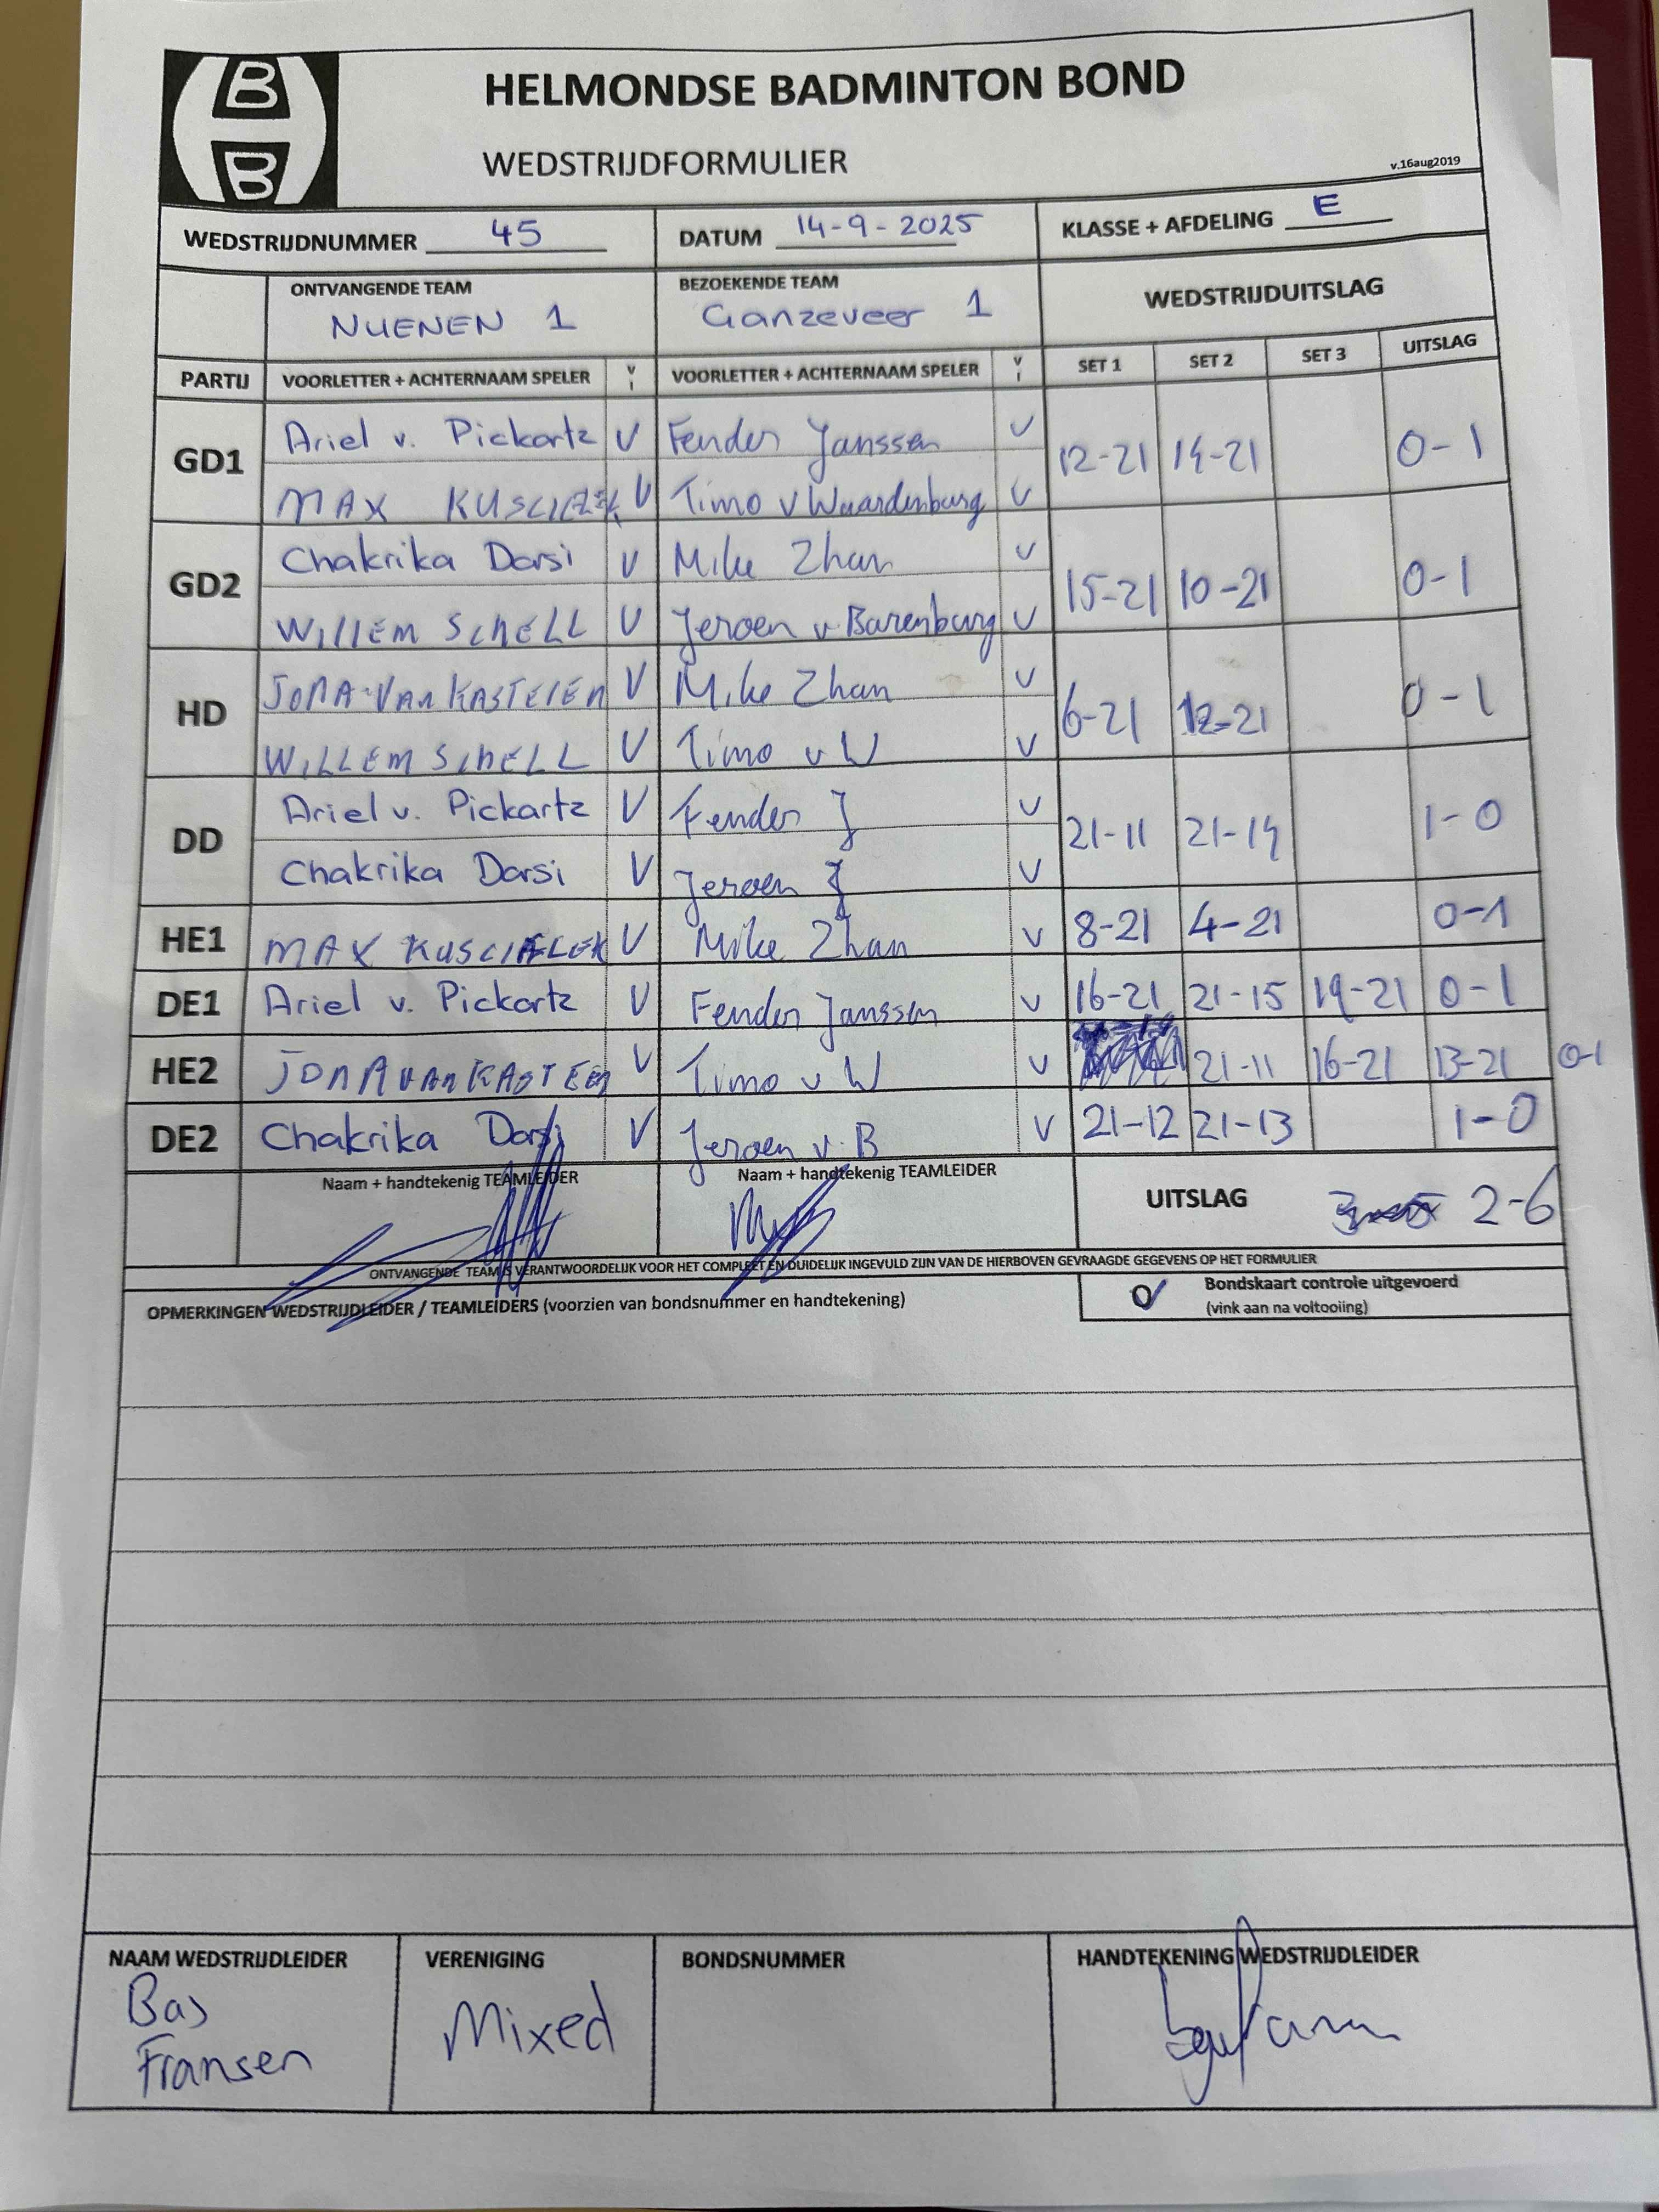 B
B
HELMONDSE BADMINTON BOND
WEDSTRIJDFORMULIER
v.16aug2019
WEDSTRIJDNUMMER 45 DATUM 14-9-2025 KLASSE + AFDELING E
ONTVANGENDE TEAM BEZOEKENDE TEAM WEDSTRIJDUITSLAG
NUENEN 1 Ganzeveer 1
PARTIJ VOORLETTER + ACHTERNAAM SPELER V I VOORLETTER + ACHTERNAAM SPELER V I SET 1 SET 2 SET 3 UITSLAG
GD1 Ariel v. Pickartz V Fender Janssen V 12-21 14-21 0-1
MAX V Timo v Waardenburg V
GD2 Chakrika Darsi V Mike Zhan V 15-21 10-21 0-1
WILLEM SCHELL V Jeroen v Barenburg V
HD JONA VAN KASTEREN V Mike Zhan V 6-21 12-21 0-1
WILLEM SCHELL V Timo v W V
DD Ariel v. Pickartz V Fender J V 21-11 21-14 1-0
Chakrika Darsi V Jeroen V
HE1 MAX V Mike Zhan V 8-21 4-21 0-1
DE1 Ariel v. Pickartz V Fender Janssen V 16-21 21-15 19-21 0-1
HE2 JONA VAN KASTEREN V Timo v W V 21-11 16-21 13-21 0-1
DE2 Chakrika Darsi V Jeroen v. B V 21-12 21-13 1-0
Naam + handtekenig TEAMLEIDER Naam + handtekenig TEAMLEIDER UITSLAG 2-6
ONTVANGENDE TEAM IS VERANTWOORDELIJK VOOR HET COMPLEET EN DUIDELIJK INGEVULD ZIJN VAN DE HIERBOVEN GEVRAAGDE GEGEVENS OP HET FORMULIER
OPMERKINGEN WEDSTRIJDLEIDER / TEAMLEIDERS (voorzien van bondsnummer en handtekening)
O Bondskaart controle uitgevoerd
(vink aan na voltooiing)
NAAM WEDSTRIJDLEIDER VERENIGING BONDSNUMMER HANDTEKENING WEDSTRIJDLEIDER
Bas Mixed
Fransen